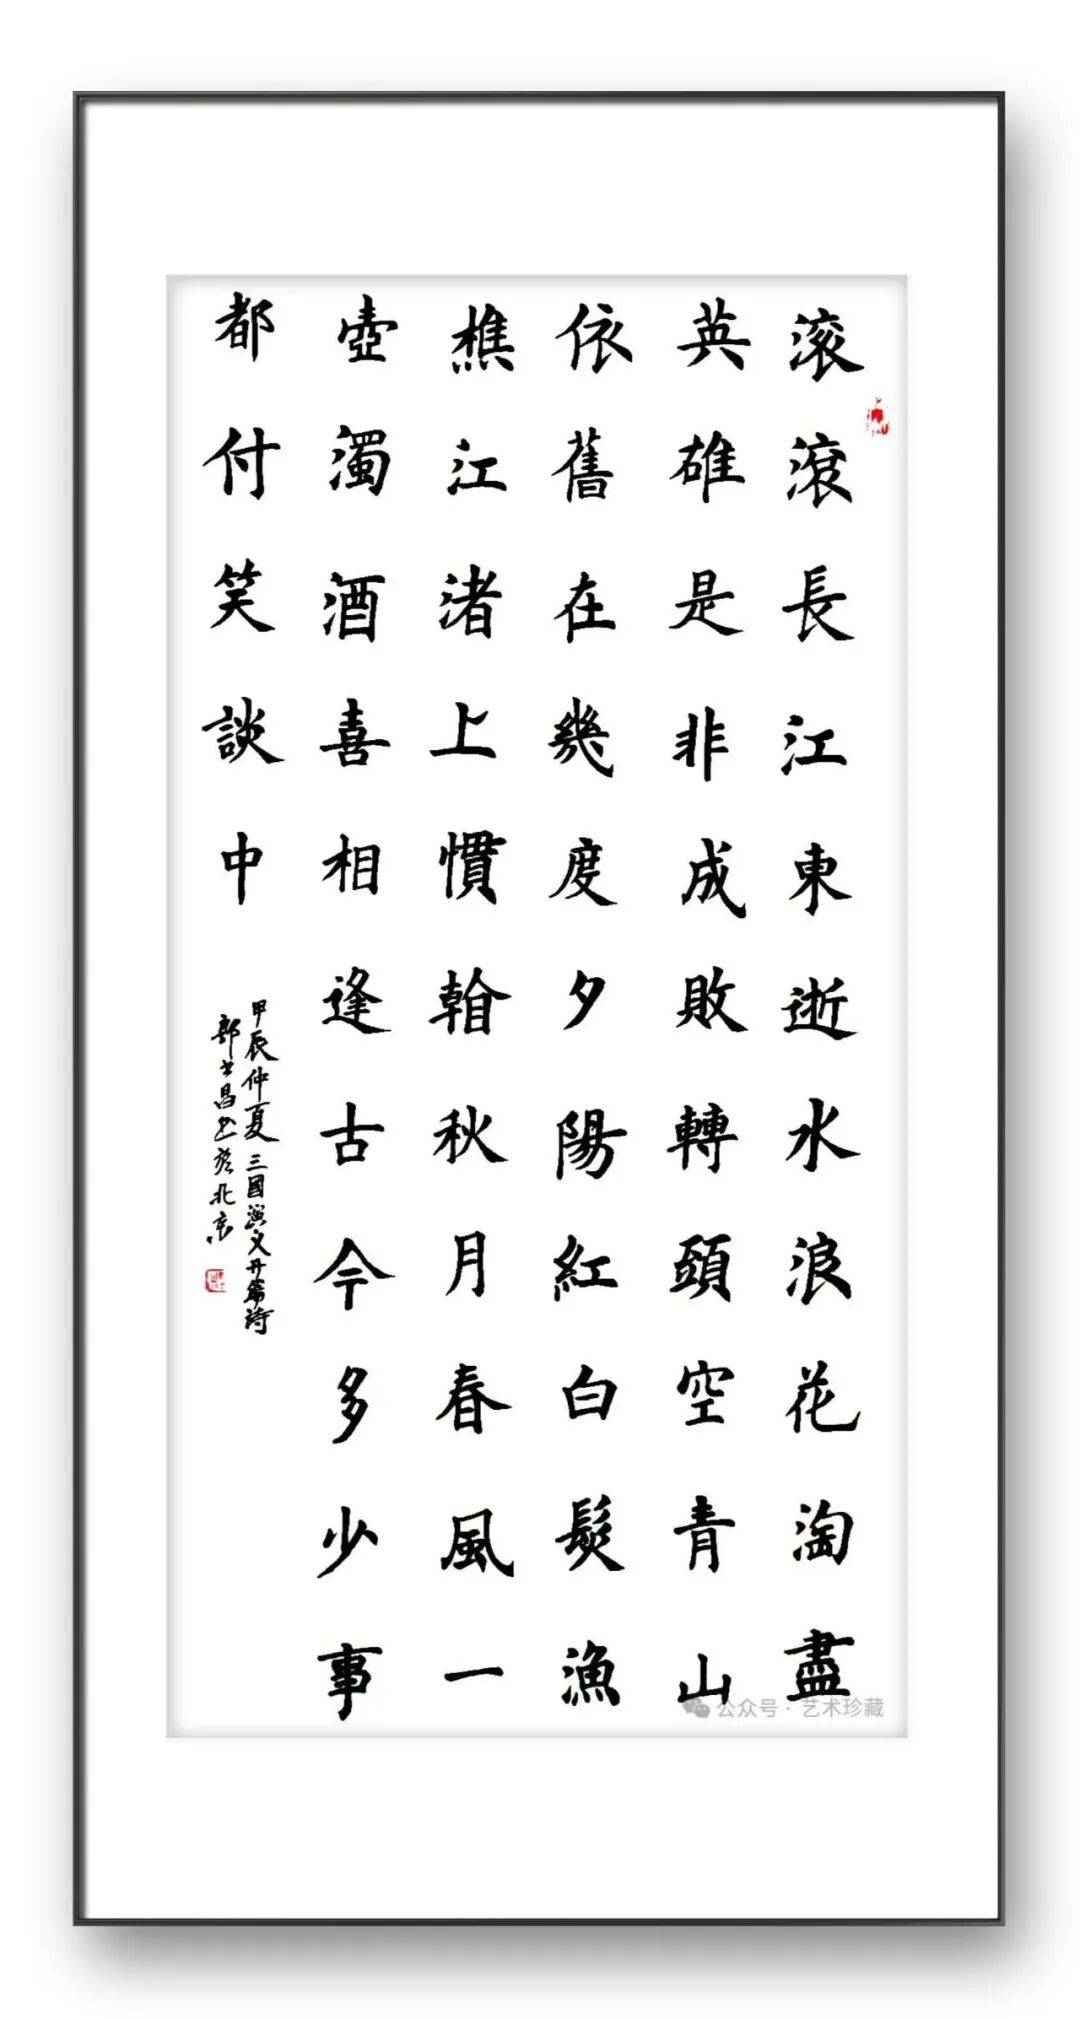 滚滾長江東逝水浪花淘盡
英雄是非成敗轉頭空青山
依舊在幾度夕陽紅白髮漁
樵江渚上慣看秋月春風一
壺濁酒喜相逢古今多少事
都付笑談中
甲辰仲夏三國演义开篇詩
昌书於北京
公众号·艺术珍藏